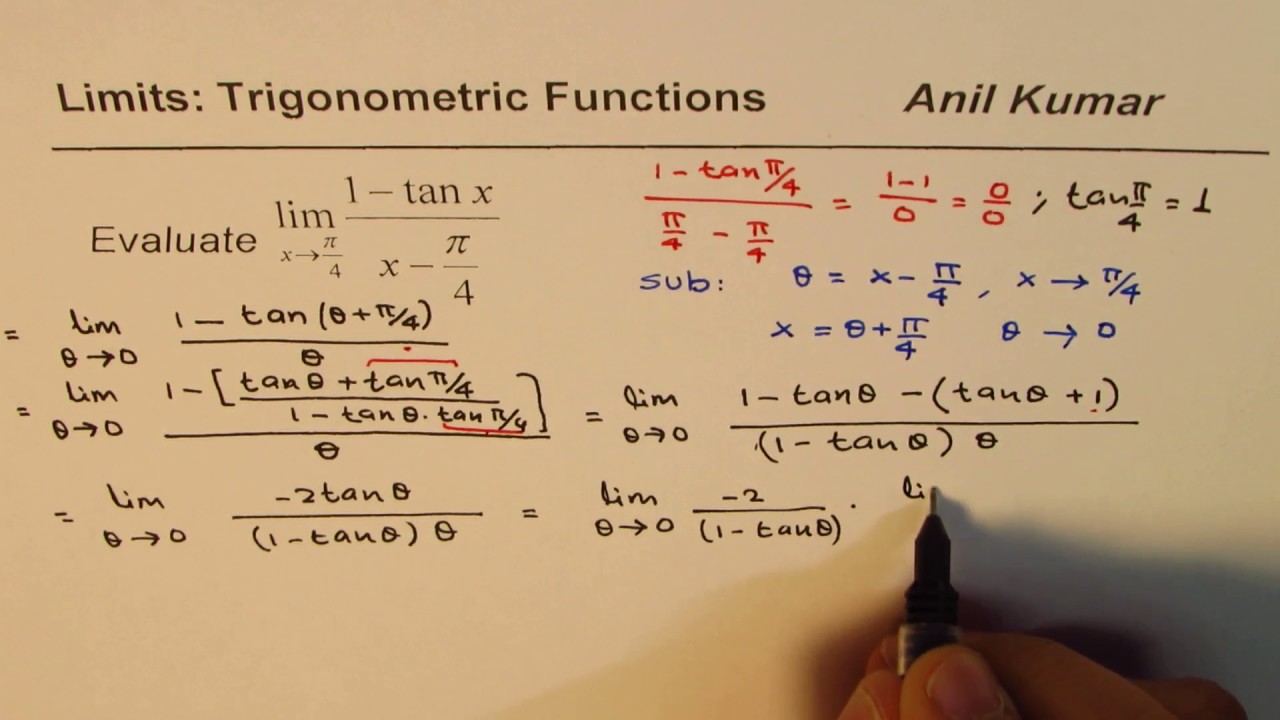 Limits: Trigonometric Functions Anil Kumar
Evaluate lim x→π/4 (1 − tan x)/(x − π/4)
(1 - tan π/4)/(π/4 - π/4) = (1-1)/0 = 0/0 ; tan π/4 = 1
sub: θ = x - π/4 , x → π/4
x = θ + π/4 θ → 0
= lim θ→0 (1 - tan (θ + π/4))/θ
= lim θ→0 (1 - [(tan θ + tan π/4)/(1 - tan θ . tan π/4)])/θ = lim θ→0 (1 - tan θ - (tan θ + 1))/((1 - tan θ) θ)
= lim θ→0 (-2 tan θ)/((1 - tan θ) θ) = lim θ→0 (-2)/((1 - tan θ)) . li